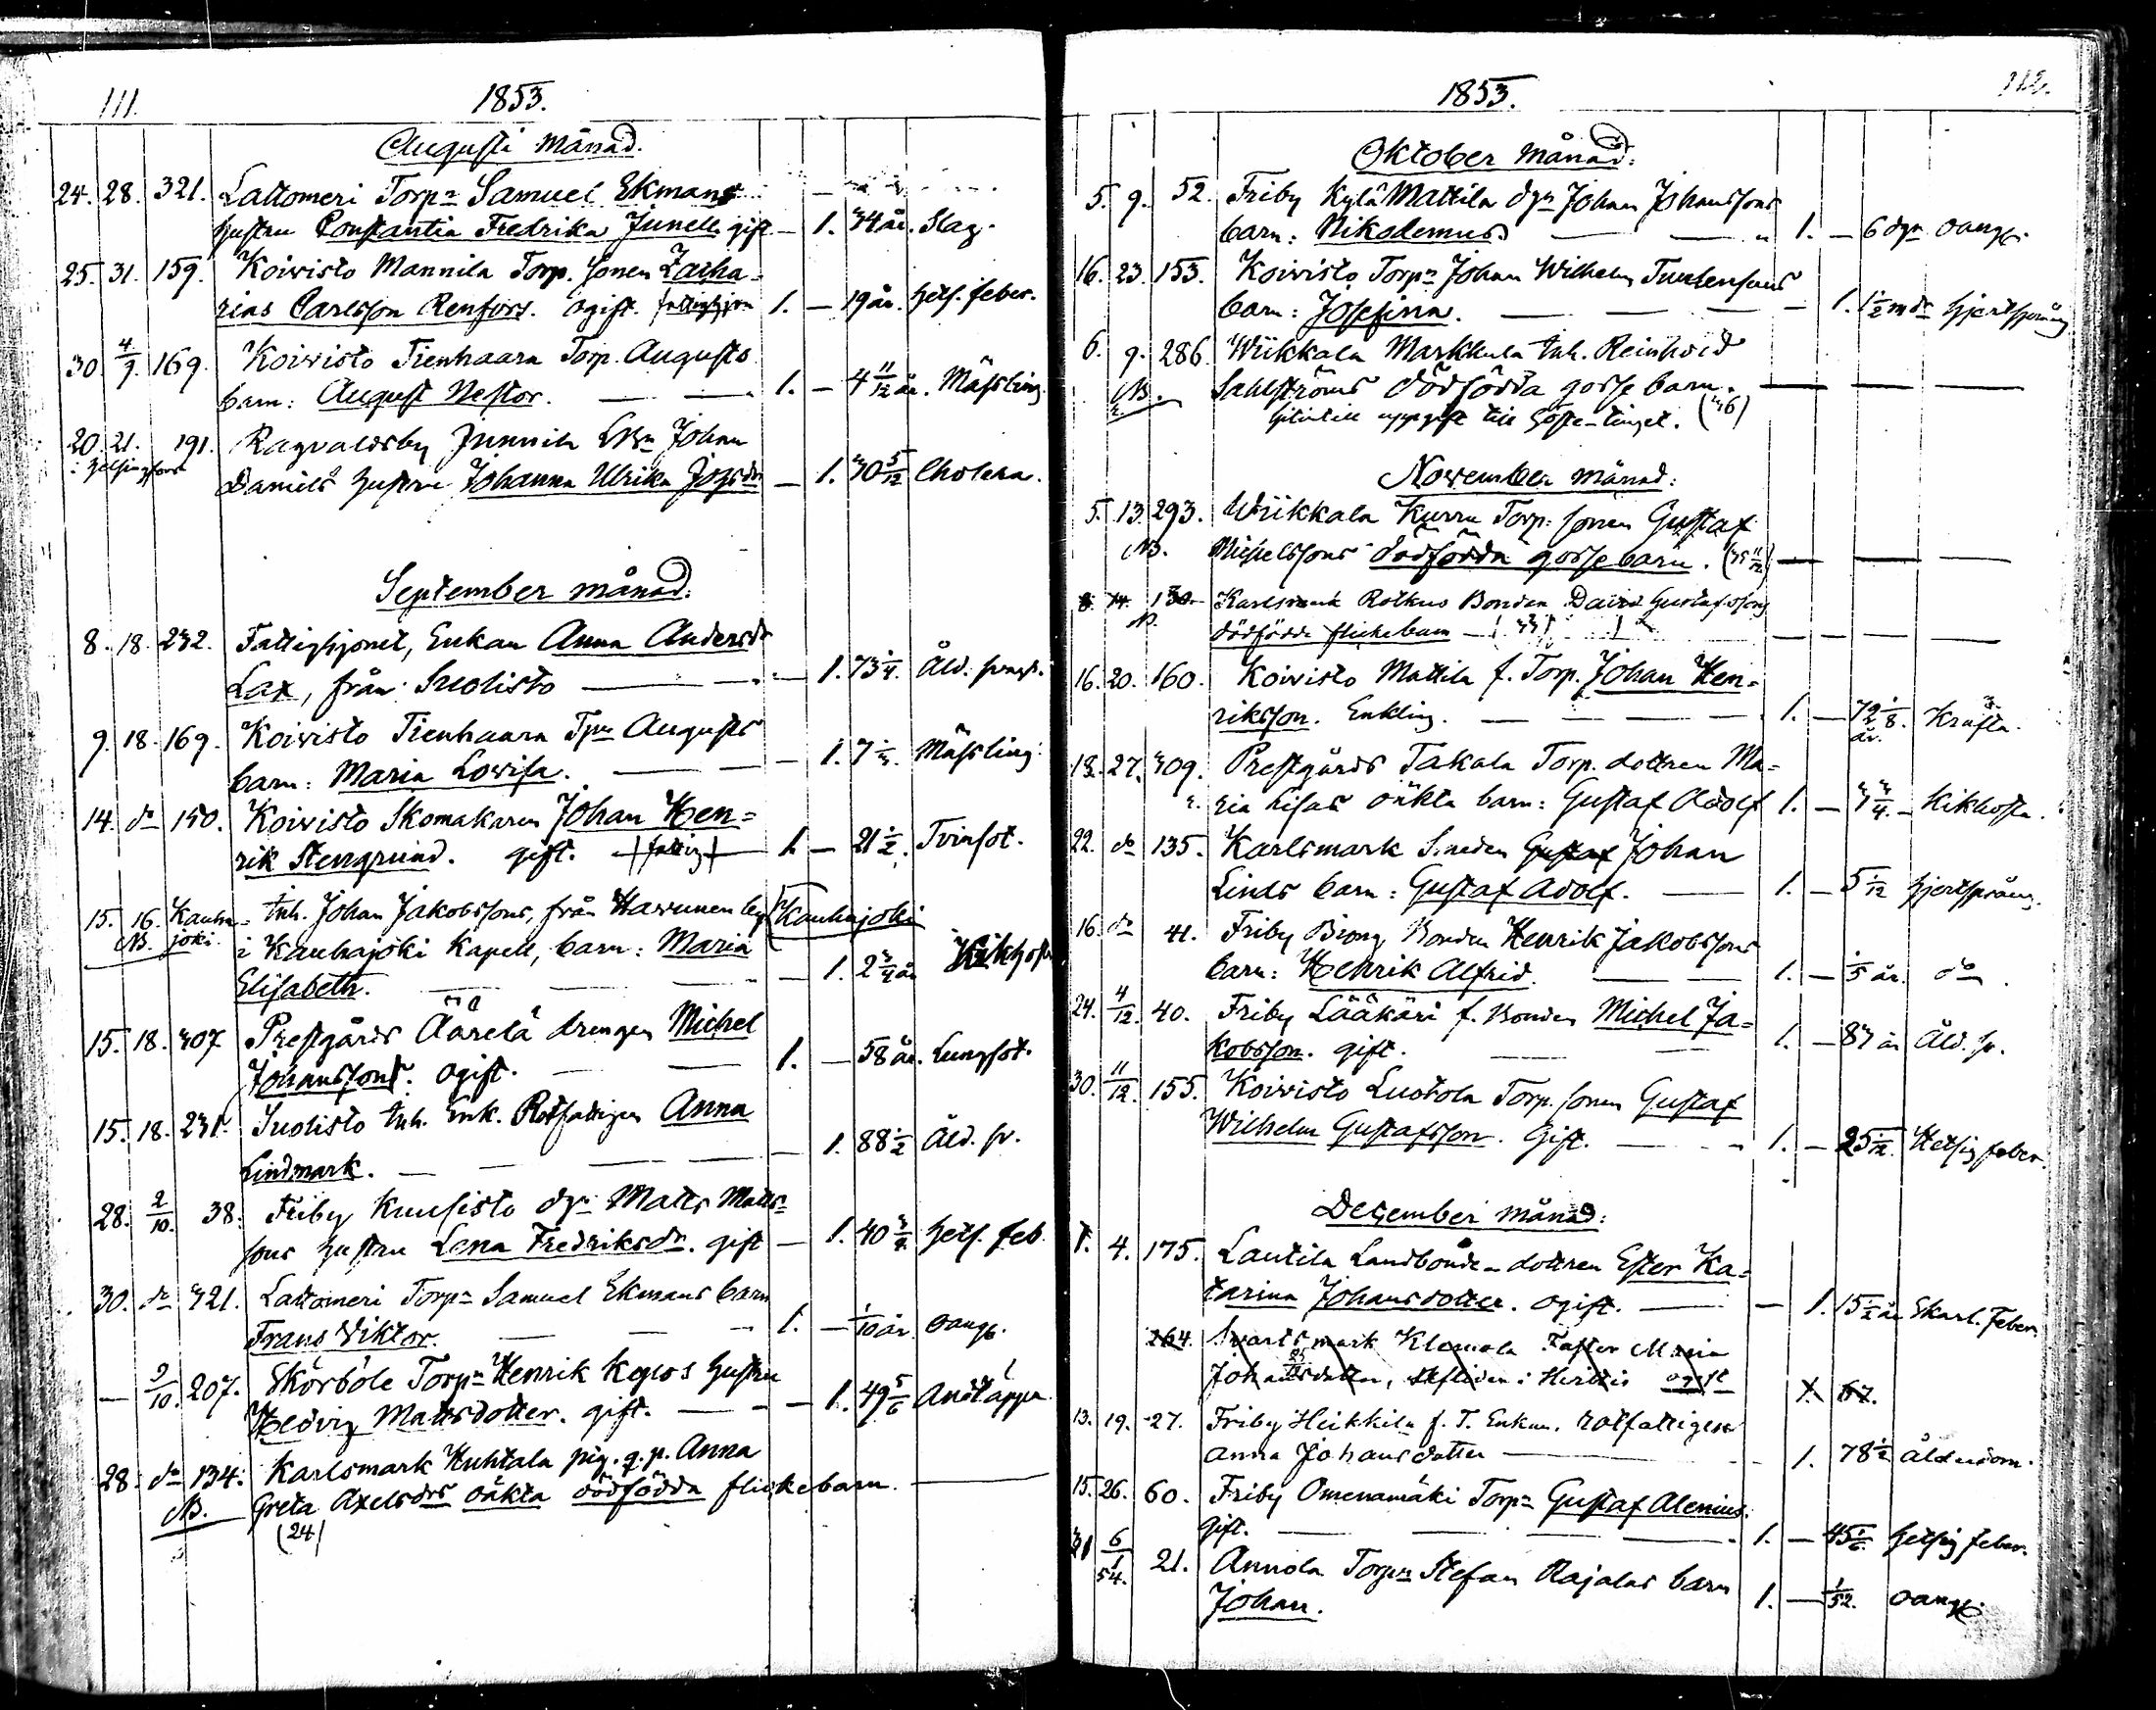 111.
1853.
Augusti månad.
24. 28. 321. Lattomeri Torp:n Samuel Ekmans
hustru Constantia Fredrika Junell. gift. — 1. 34 år. Slag.
25. 31. 159. Koivisto Mannila Torp. sonen Zacha=
rias Carlsson Renfors. ogift. fattighjon 1. — 19 år. Hets. feber.
30. 4/9. 169. Koivisto Tienhaara Torp. Augusts
barn: August Nestor. — — 1. — 4 11/12 år. Mässling.
20. 21. 191. Ragvaldsby Junnila Johan
i Helsingfors
Daniels hustru Johanna Ulrika — 1. 30 5/12 Cholera.
September månad.
8. 18. 232. Fattighjonet, Enkan Anna Andersdr
Lax, från Suolisto — 1. 73 1/4. Åld.
9. 18. 169. Koivisto Tienhaara Augusts
barn: Maria Lovisa. — — 1. Mässling.
14. do 150. Koivisto Skomakaren Johan Hen=
rik Stengrund. gift. (fattig) 1. — 21 1/2. Tvinsot.
15. 16. Kauha= Inh. Johan Jakobssons, från Harunen by Kauhajoki
NB. joki. i Kauhajoki Kapell, barn: Maria
Elisabeth. — — 1. 2 3/4 år Kikhosta
15. 18. 307. Prestgårds Äärelä drengen Michel
Johansson. ogift. — — 1. — 58 år. Lungsot.
15. 18. 231. Suolisto Inh. Enk. Rotfattigen Anna
Lindmark. — — 1. 88 1/2 Åld. sv.
28. 2/10. 38. Friby Kuusisto Matts Matts=
sons hustru Lena Fredriksdr. gift — 1. 40 3/4 Hets. feb.
30. do 321. Lattomeri Torp:n Samuel Ekmans barn
Frans Viktor. — — 1. — 1/10 år. oang.
— 9/10. 207. Skörböle Torp:n Henrik Koplos hustru
Hedvig Mattsdotter. gift. — — 1. 49 5/6 Andtäppa
28. do 134. Karlsmark Huhtala pig. q. p. Anna
NB. Greta Axelsdrs oäkta dödfödda flickebarn.
(24)
112.
1853.
Oktober månad.
5. 9. 52. Friby Kylä Mattila Johan Johanssons
barn: Nikodemus — — 1. — 6 dgr oang.
16. 23. 153. Koivisto Torp:n Johan Wilhelm
barn: Josefina. — — 1. 1 1/2 mdr Hjertsprång
6. 9. 286. Wiikkala Markkula Inh. Reinhold
NB. Sahlströms dödfödda gosse barn. — — —
uppgift till Höste-tinget. (36)
November månad:
5. 13. 293. Wiikkala Kurru Torp: sonen Gustaf
NB. Michelssons dödfödda gosse barn. (35 11/12) — — —
8. 14. 130. Karlsmark Rotkus Bonden David Gustafssons
N. dödfödde flickebarn — (33) — — —
16. 20. 160. Koivisto Mattila f. Torp. Johan Hen=
riksson. Enkling. — — 1. — 72 år. Kräfta.
18. 27. 309. Prestgårds Takala Torp. dottren Ma=
ria Lisas oäkta barn: Gustaf Adolf 1. — 3/4. Kikhosta.
22. do 135. Karlsmark Smeden Gustaf Johan
Linds barn: Gustaf Adolf. — 1. — 5 1/12 Hjertsprång.
16. do 41. Friby Biong Bonden Henrik Jakobssons
barn: Henrik Alfrid. — — 1. — 1/5 år. do.
24. 4/12. 40. Friby Lääkäri f. Bonden Michel Ja=
kobsson. gift. — — 1. — 83 år Åld. sv.
30. 11/12. 155. Koivisto Luotola Torp. sonen Gustaf
Wilhelm Gustafsson. Gift. — 1. — 25 1/12. Hetsig feber.
December månad:
1. 4. 175. Lautila Landbonde-dottren Ester Ka=
tarina Johansdotter. ogift. — — 1. 15 1/2 år. Skarl. Feber.
264. Svartsmark Klemola Faster Maria
Johansdotter, afliden i Hvittis ogift 1. 67.
13. 19. 27. Friby Heikkila f. T. Enkan, rotfattigen
Anna Johansdotter — 1. 78 1/2 Ålderdom.
15. 26. 60. Friby Omenamäki Torp:n Gustaf Alenius.
Gift. — — 1. — 45 1/6. Hetsig feber.
31 6/1 54. 21. Annola Torp:n Stefan Rajalas barn
Johan. 1. — 1/52. oang.